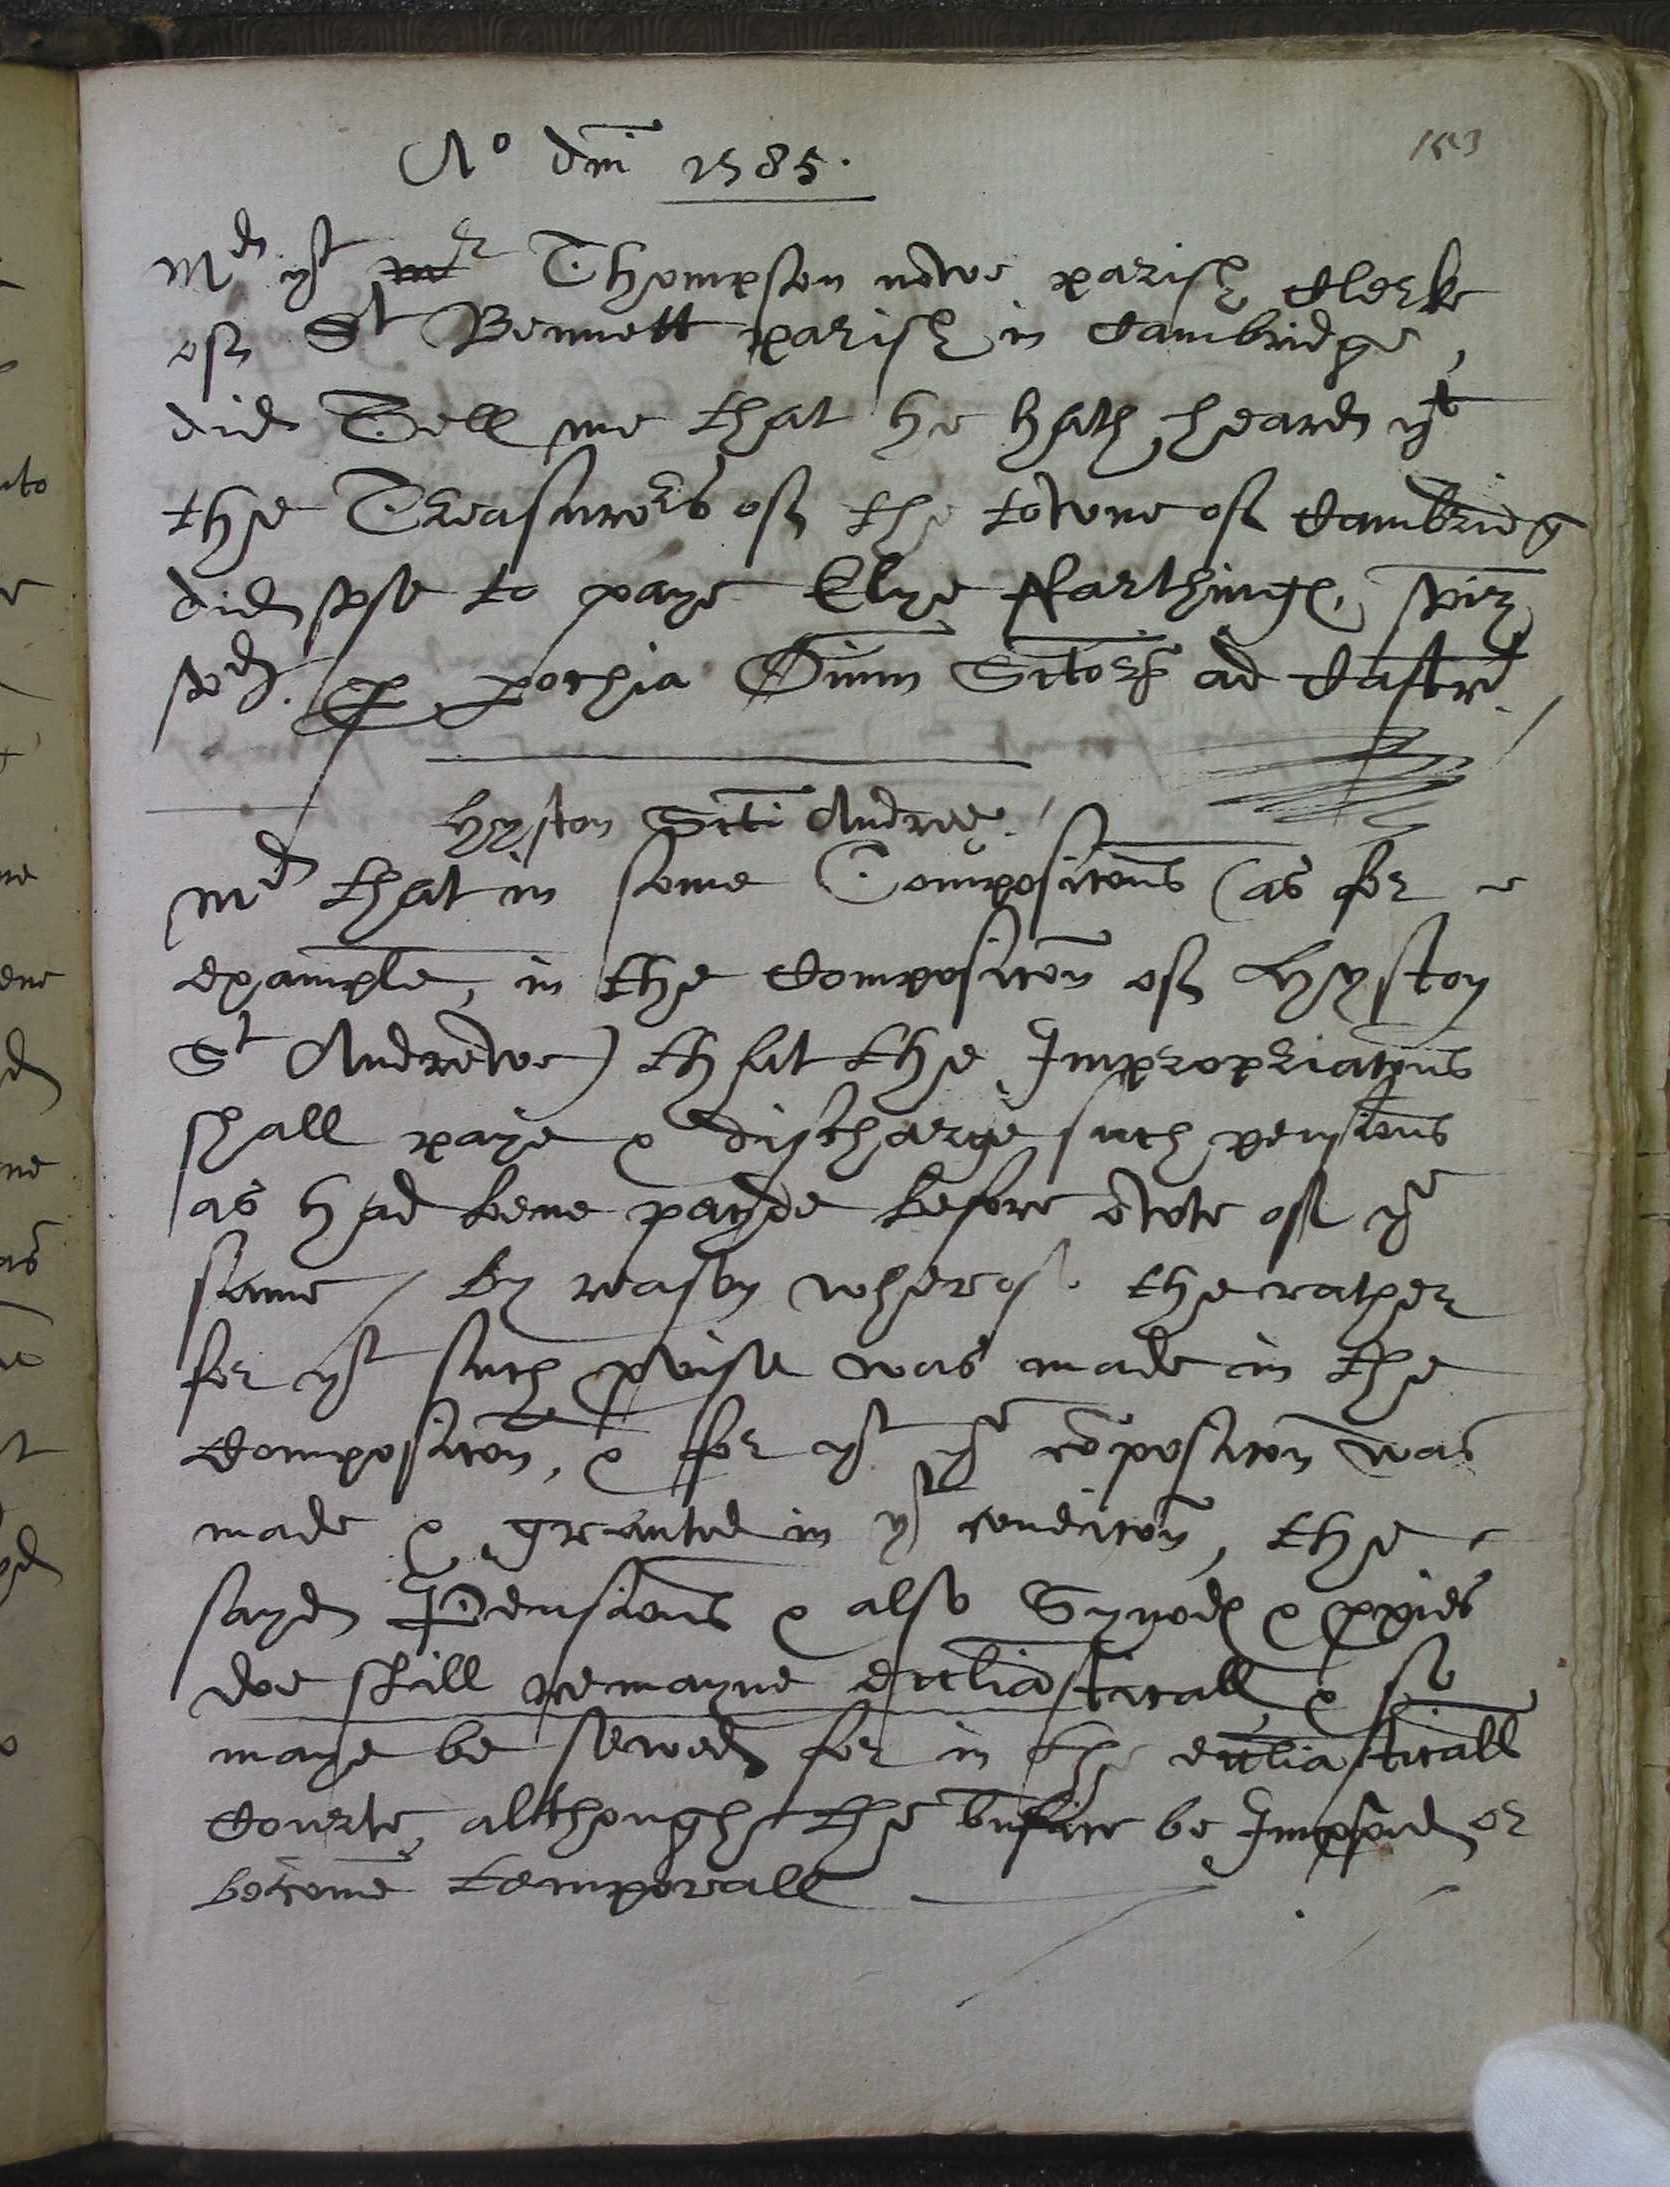 Ao dni 1585.
153
Md yt mr Thompson nowe parish Clerke
of St Bennett parish in Cambridge,
did Tell me that he hath heard yt
the Treasurers of the towne of Cambridg
did use to paye Elye Farthings, viz
pochia Oim Sctor ad Castr.
Hyston Scti Andree.
Md that in some Compositcons (as for
example, in the Compositcon of Hyston
St Andrewe) that the Impropriatcons
shall paye & discharge such pensions
as had bene payde before owte of ye
same / by reason wherof the rather
for yt such pvise was made in the
Compositcon, & for yt ye coposition was
made & graunted in yt condicon, the
sayd Pensions & also Synod & pxies
doe still remayne eccliasticall & so
maye be sewed for in the eccliasticall
Courte although the bnfice be Impped or
become temporall